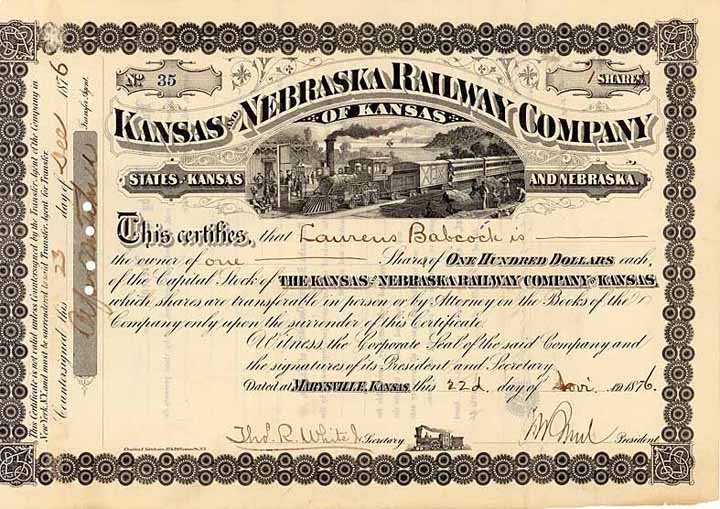 No 35
1 SHARES
KANSAS AND NEBRASKA RAILWAY COMPANY
OF KANSAS
STATES OF KANSAS AND NEBRASKA.
This certifies, that Laurens Babcock is
the owner of one Shares of ONE HUNDRED DOLLARS each,
of the Capital Stock of THE KANSAS AND NEBRASKA RAILWAY COMPANY OF KANSAS,
which shares are transferable in person or by Attorney on the Books of the
Company only upon the surrender of this Certificate.
Witness the Corporate Seal of the said Company and
the signatures of its President and Secretary.
Dated at MARYSVILLE, KANSAS, this 22d day of Novr. AD 1876.
Thos. R. White Jr Secretary
President
This Certificate is not valid unless Countersigned by the Transfer Agent of the Company in
New York, N.Y. and must be surrendered to said Transfer Agent for Transfer.
Countersigned this 23 day of Dec 1876
Transfer Agent.